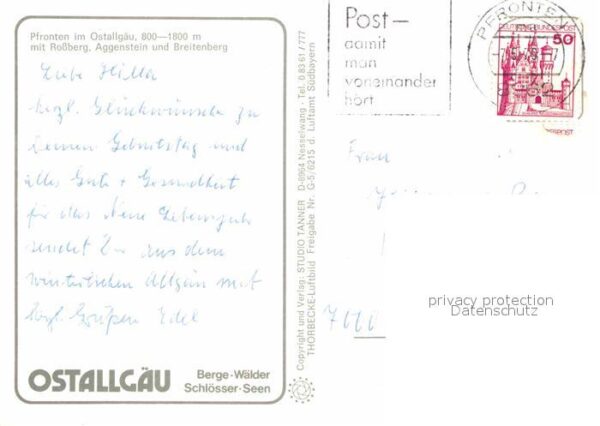 Pfronten im Ostallgäu, 800—1800 m
mit Roßberg, Aggenstein und Breitenberg
Liebe Hilla
herzl. Glückwünsche zu
Deinem Geburtstag und
alles Gute + Gesundheit
für das Neue Lebensjahr
sendet Dir aus dem
winterlichen Allgäu mit
herzl. Grüßen Edel
OSTALLGÄU
Berge-Wälder
Schlösser-Seen
Copyright und Verlag: STUDIO TANNER D-8964 Nesselwang - Tel. 0 83 61 / 777
THORBECKE-Luftbild Freigabe Nr. G-5/6215 d. Luftamt Südbayern
Post—
damit
man
voneinander
hört
PFRONTEN
DEUTSCHE BUNDESPOST
50
Frau
7000
privacy protection
Datenschutz